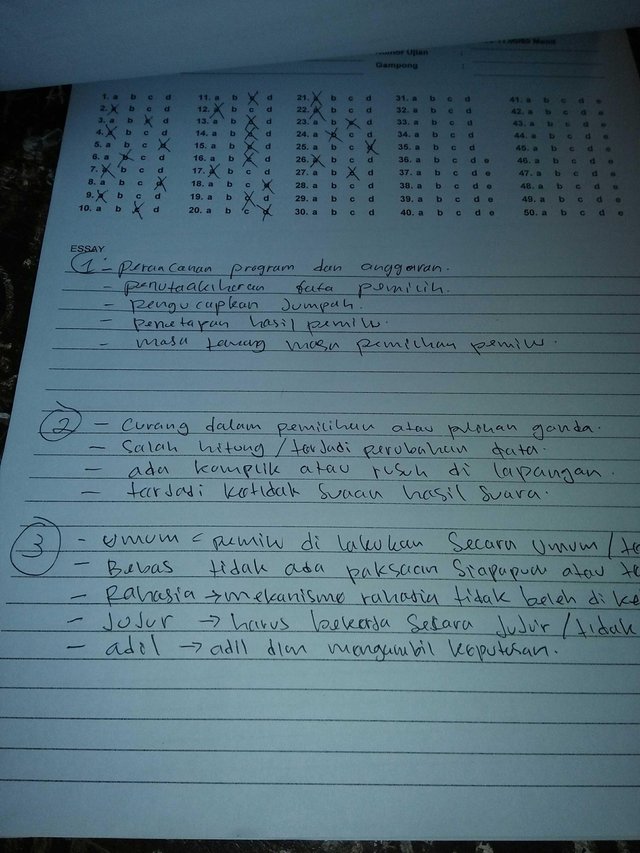 Nomor Ujian
Gampong :
1. a b c d 11. a b c d 21. a b c d 31. a b c d 41. a b c d e
2. a b c d 12. a b c d 22. a b c d 32. a b c d 42. a b c d e
3. a b c d 13. a b c d 23. a b c d 33. a b c d 43. a b c d e
4. a b c d 14. a b c d 24. a b c d 34. a b c d 44. a b c d e
5. a b c d 15. a b c d 25. a b c d 35. a b c d 45. a b c d e
6. a b c d 16. a b c d 26. a b c d 36. a b c d e 46. a b c d e
7. a b c d 17. a b c d 27. a b c d 37. a b c d e 47. a b c d e
8. a b c d 18. a b c d 28. a b c d 38. a b c d e 48. a b c d e
9. a b c d 19. a b c d 29. a b c d 39. a b c d e 49. a b c d e
10. a b c d 20. a b c d 30. a b c d 40. a b c d e 50. a b c d e
ESSAY
1 - perancanan program dan anggaran.
- pemilih.
- pengucapkan Jumpah.
- penetapan hasil pemilu.
- masa tenang masa pemilihan pemilu.
2 - Curang dalam pemilihan atau pilihan ganda.
- Salah hitung / terjadi perubahan data.
- ada komplik atau rusuh di lapangan.
- terjadi ketidak Suaan hasil Suara.
3 - Umum = pemilu di lakukan Secara Umum /
- Bebas tidak ada paksaan Siapapun atau
- Rahasia → mekanisme rahasia tidak boleh di
- Jujur → harus bekerja Secara Jujur / tidak
- adil → adil dlam mengambil keputusan.